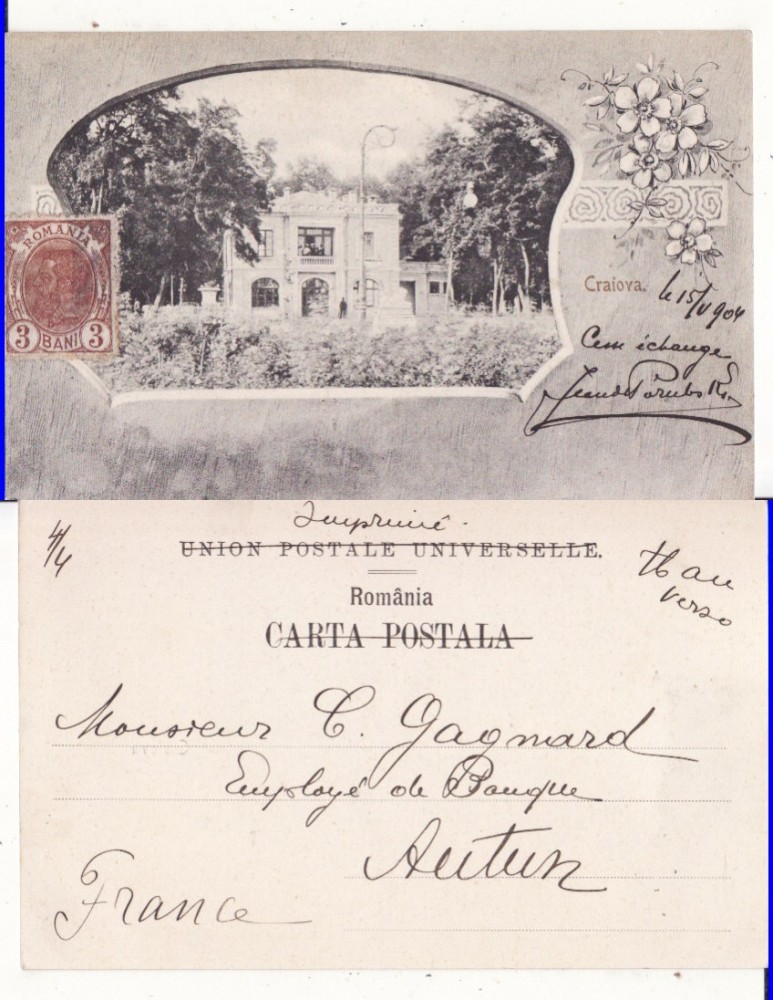 ROMANIA
3 BANI 3
Craiova.
le 15/V 904
Cem échange
4/4
Imprimé.
UNION POSTALE UNIVERSELLE.
tb au
verso
România
CARTA POSTALA
Monsieur C. Gagnard
Employé de Banque
Autun
France